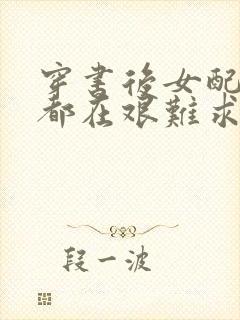 穿書後女配
都在艱難求
段一波